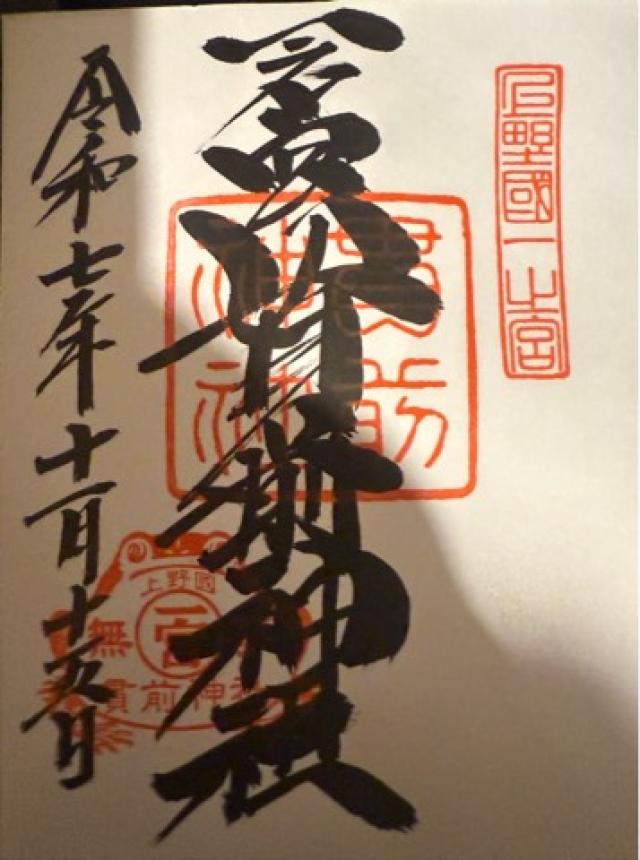 上野國一之宮
貫前神社
貫前
神社
令和七年十一月十五日
上野國
一宮
無
貫前神社